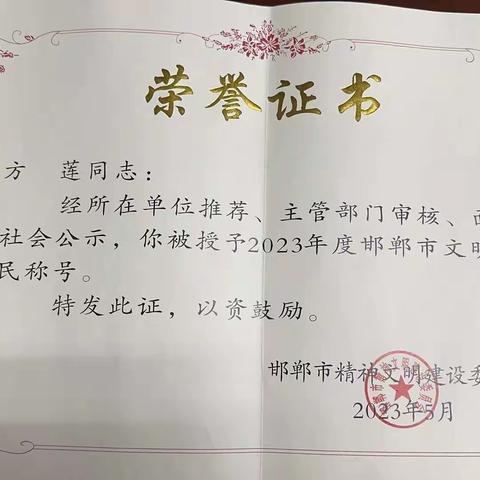 荣誉证书
方 莲同志：
经所在单位推荐、主管部门审核、面
社会公示，你被授予2023年度邯郸市文明
民称号。
特发此证，以资鼓励。
邯郸市精神文明建设委
2023年5月